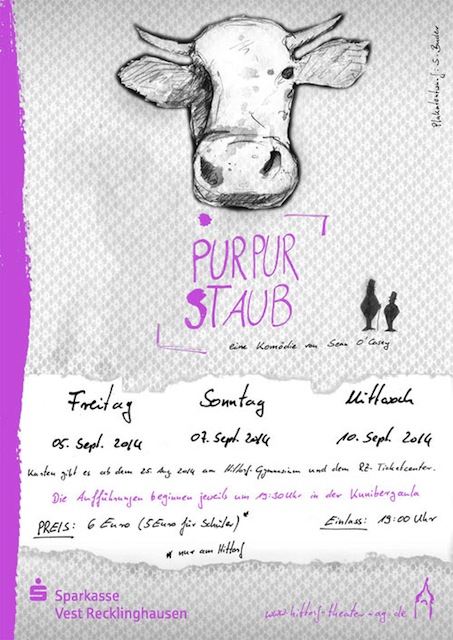 Plakatentwurf: S. Bader
PURPUR
STAUB
eine Komödie von Sean O'Casey
Freitag Sonntag Mittwoch
05. Sept. 2014 07. Sept. 2014 10. Sept. 2014
Karten gibt es ab dem 25. Aug 2014 am Hittorf-Gymnasium und dem RZ-Ticketcenter.
Die Aufführungen beginnen jeweils um 19:30 Uhr in der Kunibergaula
PREIS: 6 Euro (5 Euro für Schüler)* Einlass: 19:00 Uhr
* nur am Hittorf
Sparkasse
Vest Recklinghausen
www.hittorf-theater-ag.de